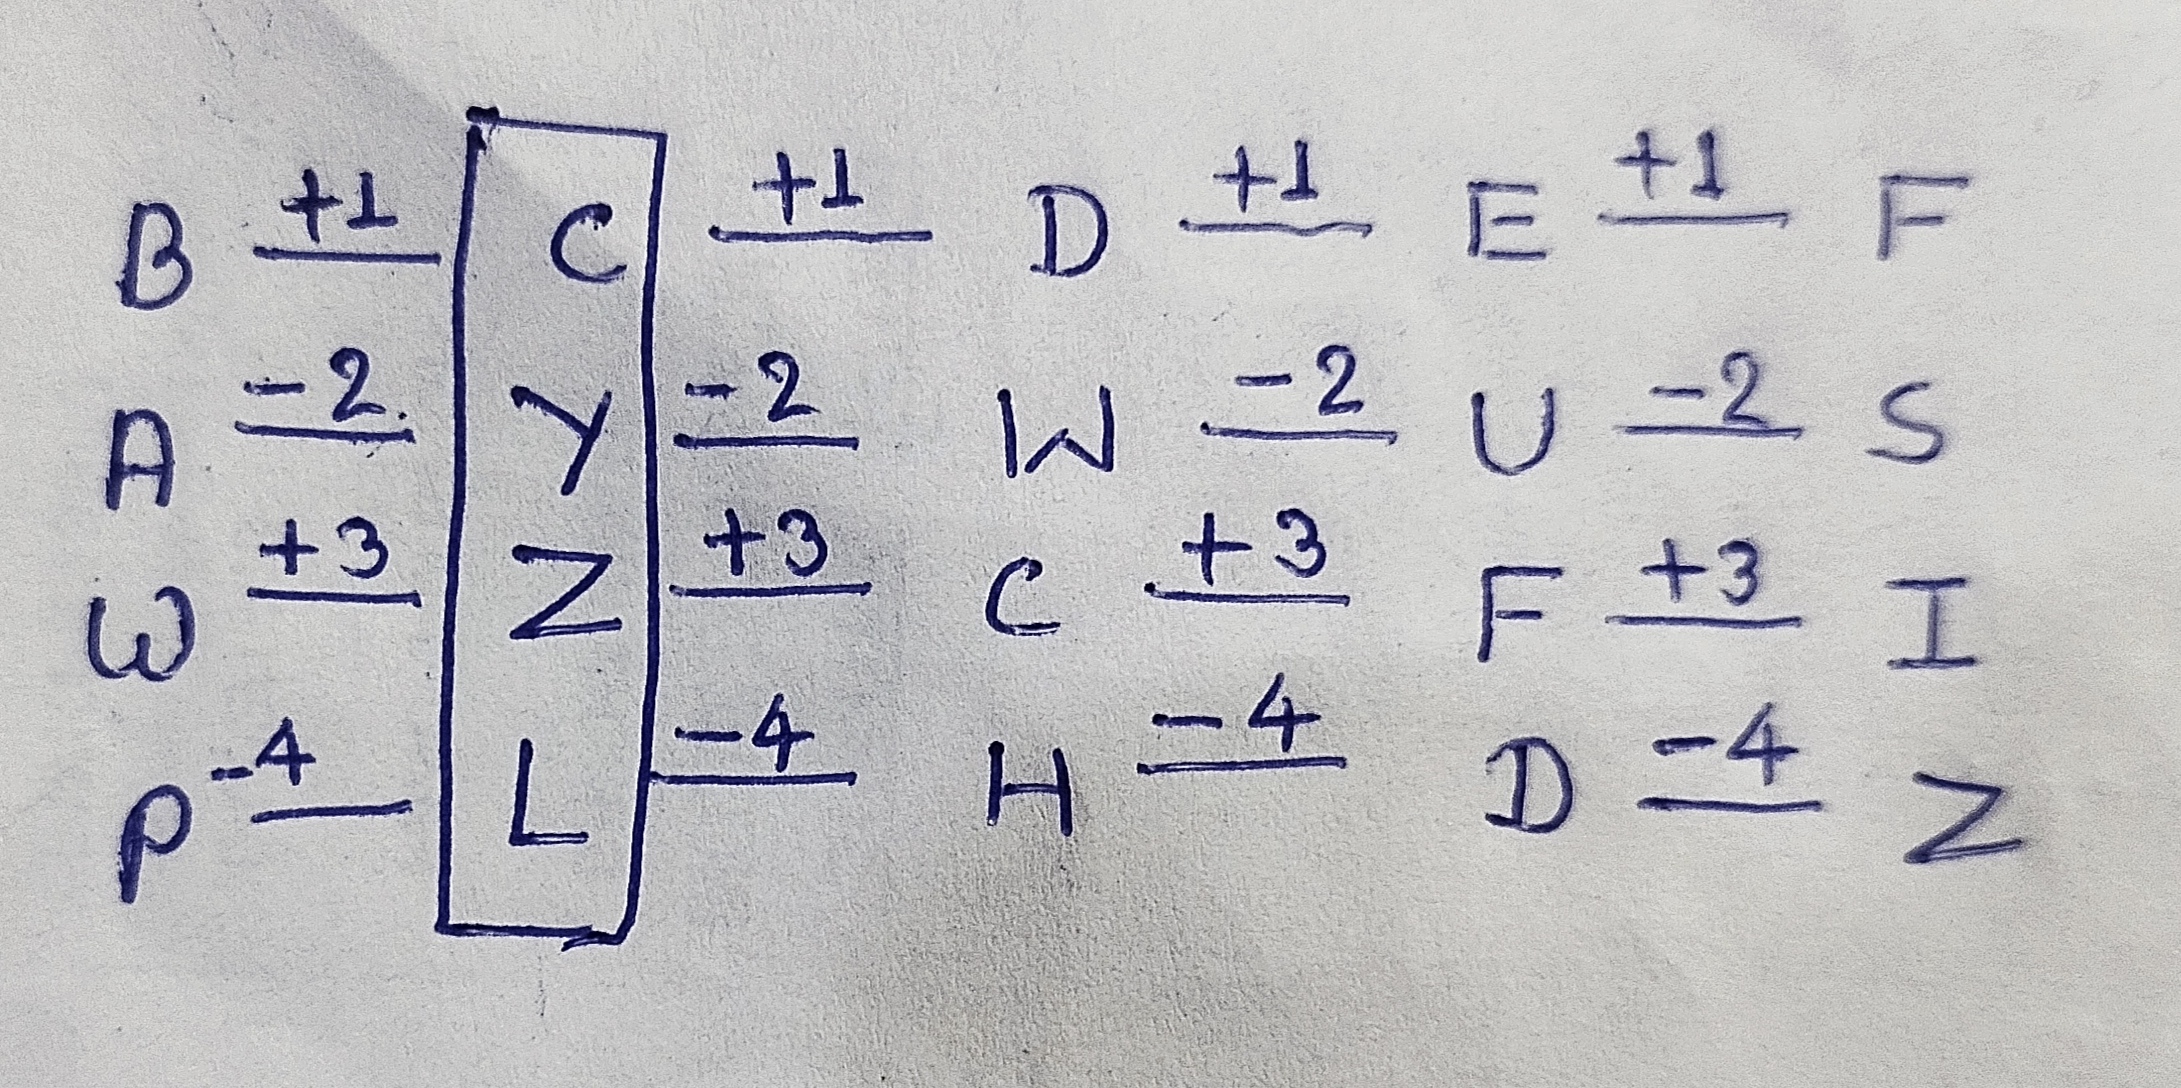 B +1 C +1 D +1 E +1 F
A -2 Y -2 W -2 U -2 S
W +3 Z +3 C +3 F +3 I
P -4 L -4 H -4 D -4 Z